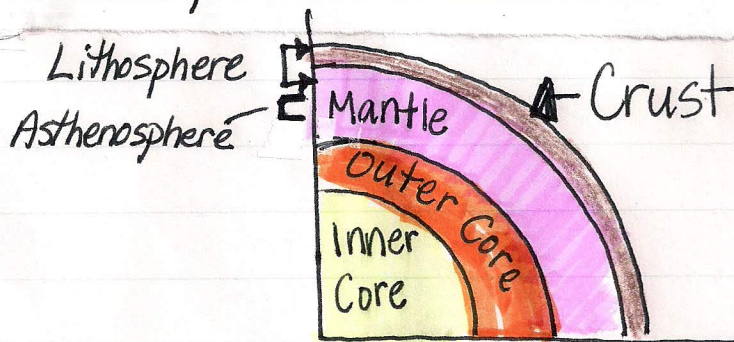 Lithosphere
Asthenosphere
Mantle
Crust
Outer Core
Inner
Core